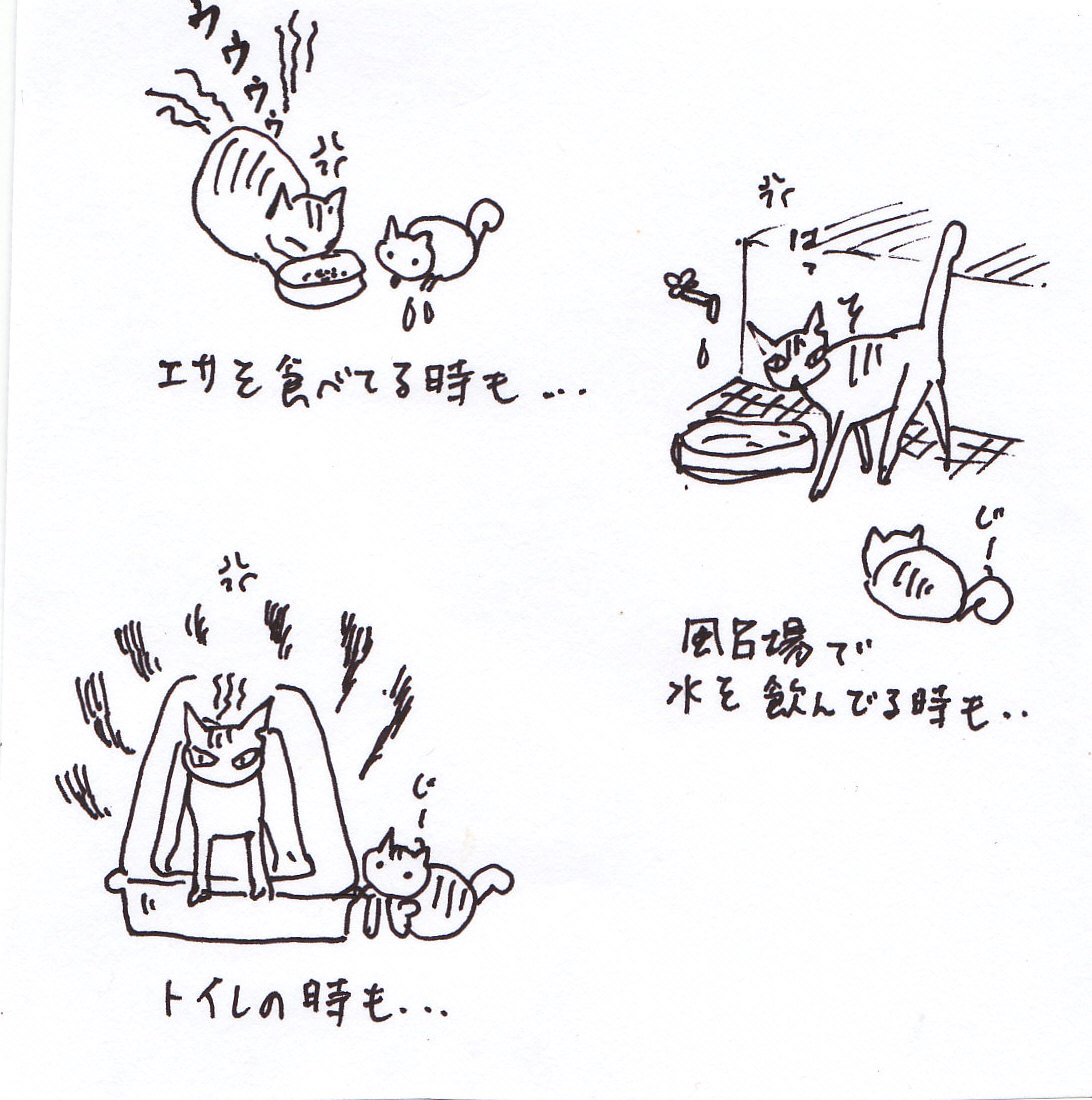 ウゥゥゥゥ
エサを食べてる時も...
はっ
じー
風呂場で
水を飲んでる時も..
じー
トイレの時も...